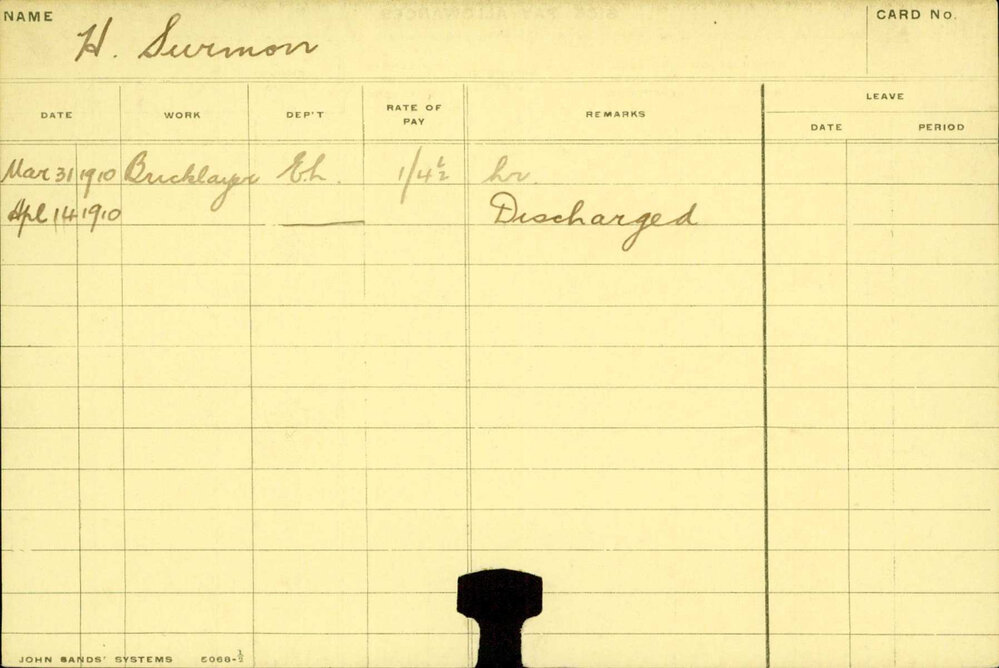 NAME
H. Surmon
CARD No.
DATE WORK DEP'T RATE OF PAY REMARKS LEAVE
DATE PERIOD
Mar 31 1910 Bricklayer Eh. 1/4½ hr.
Apl 14 1910 — Discharged
JOHN SANDS' SYSTEMS 5068-½